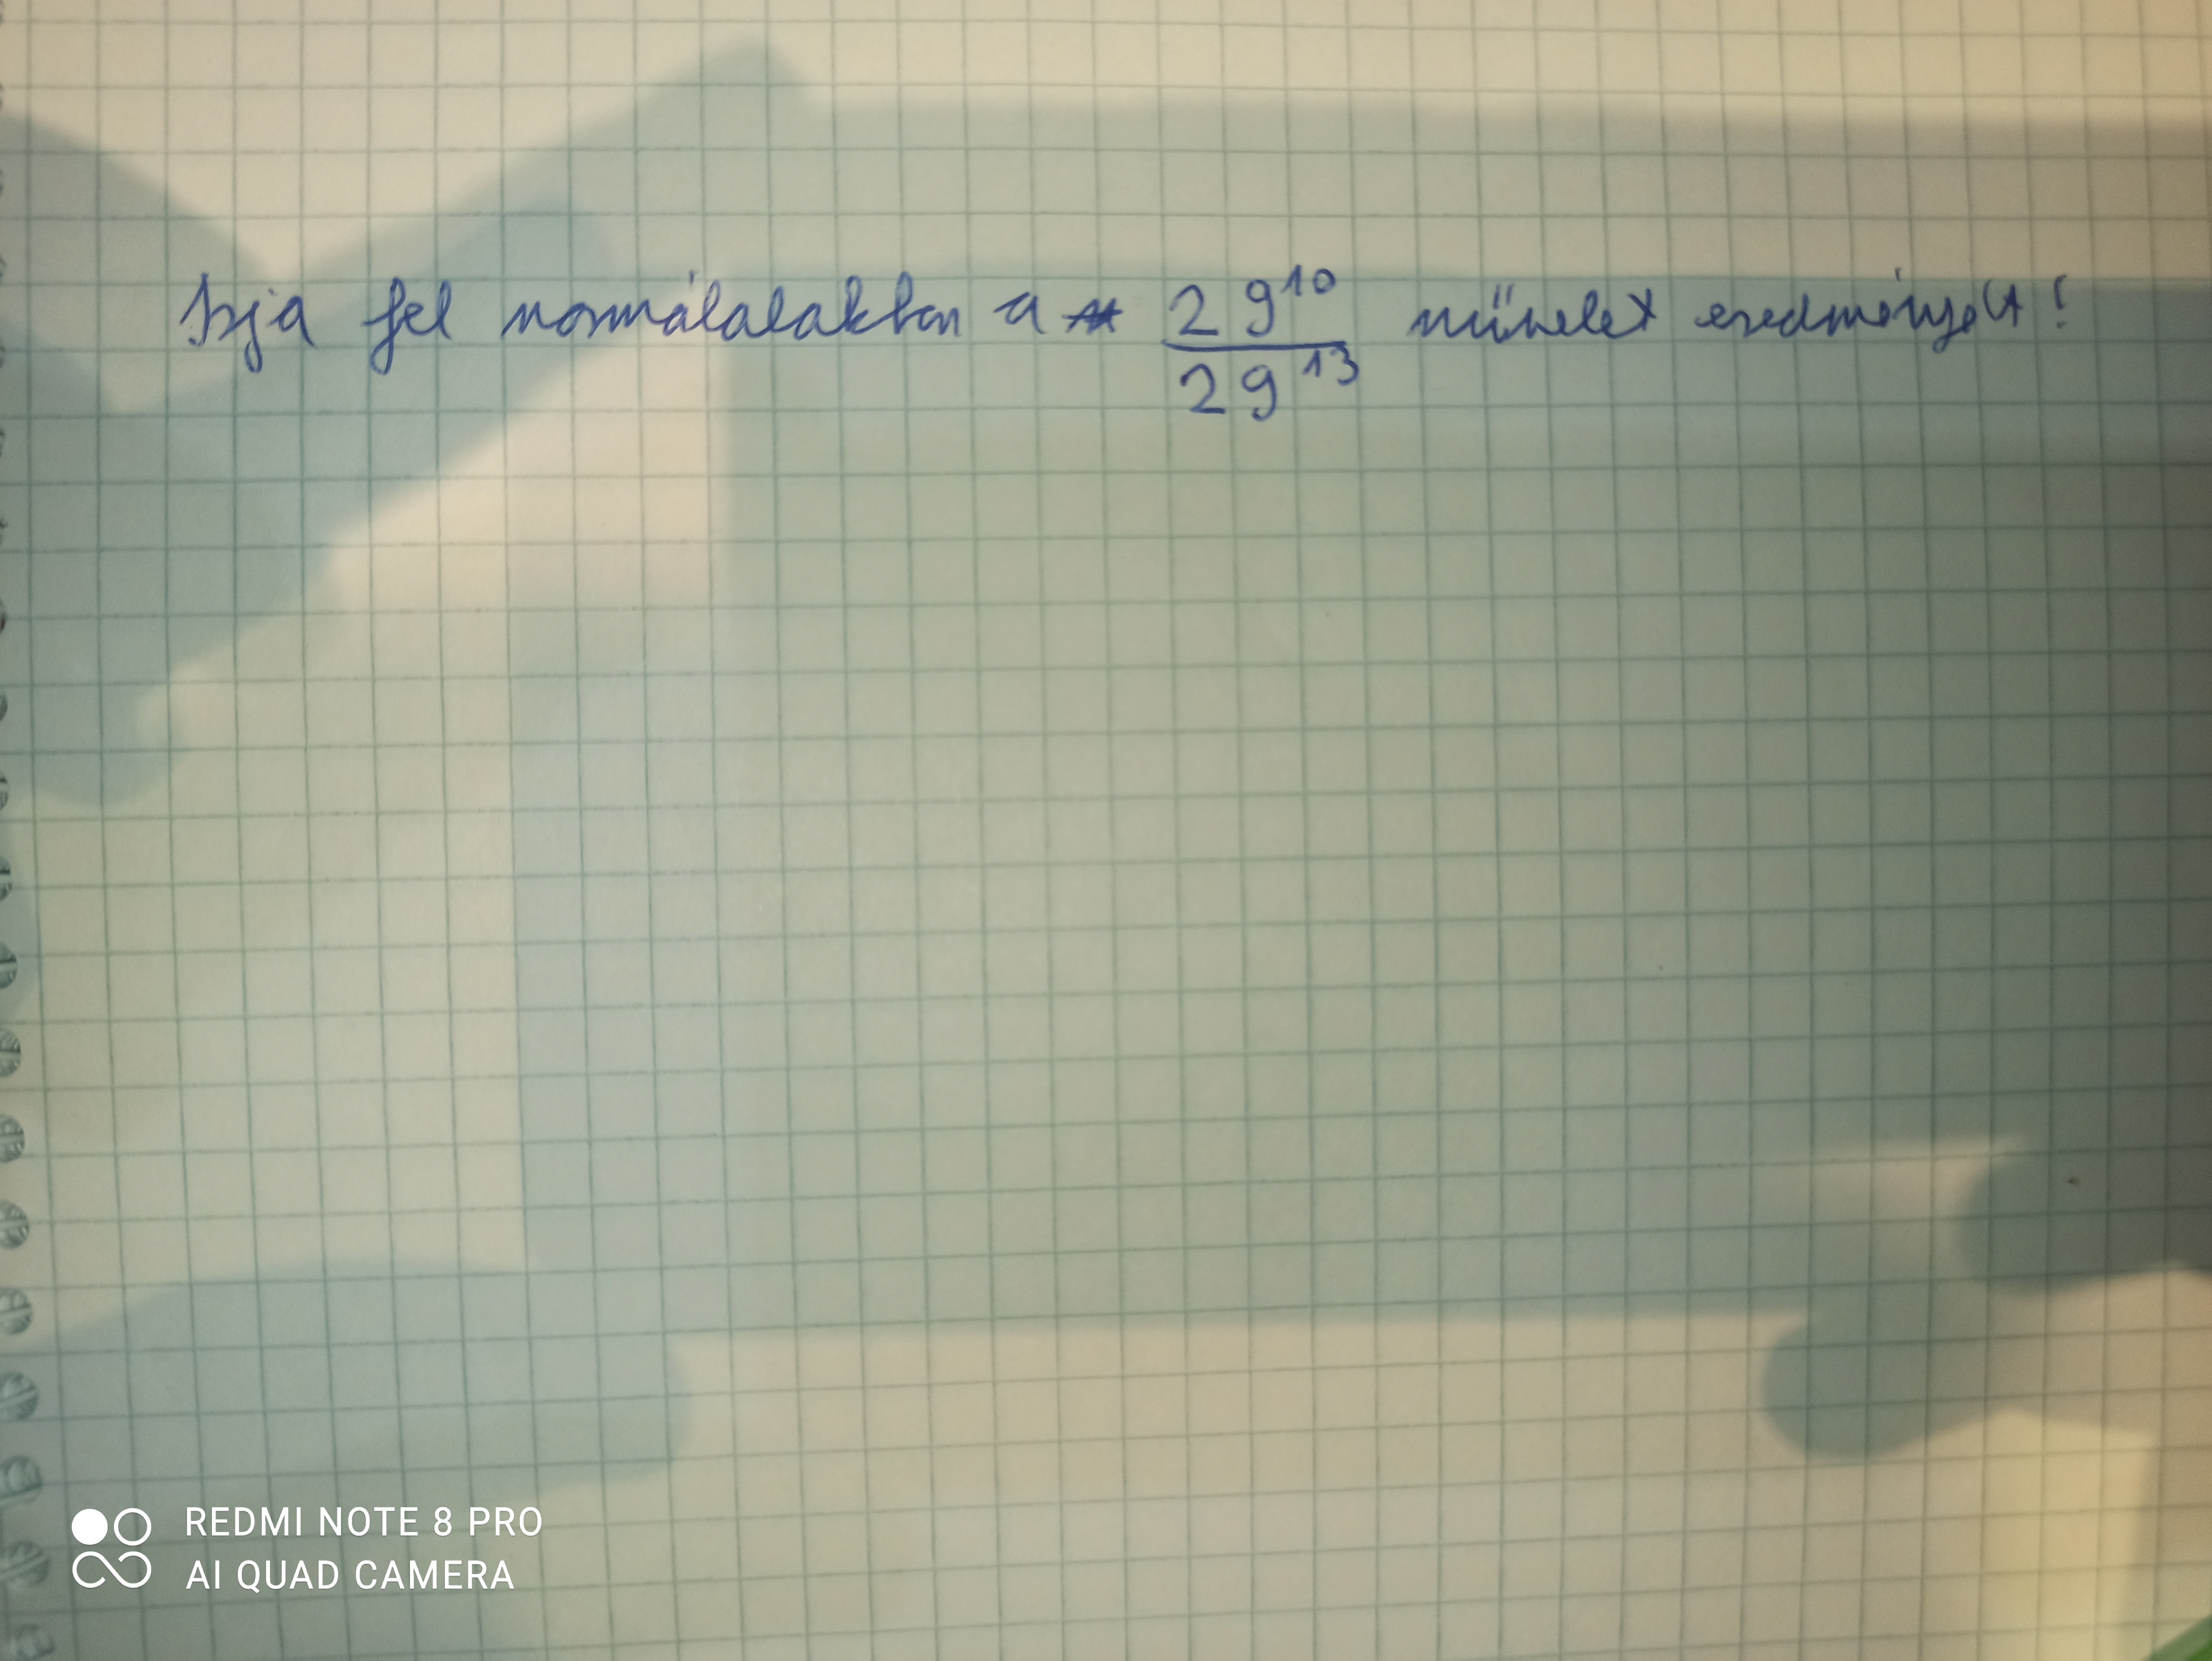 Írja fel normálalakban a 29¹⁰/29¹³ művelet eredményét!
REDMI NOTE 8 PRO
AI QUAD CAMERA